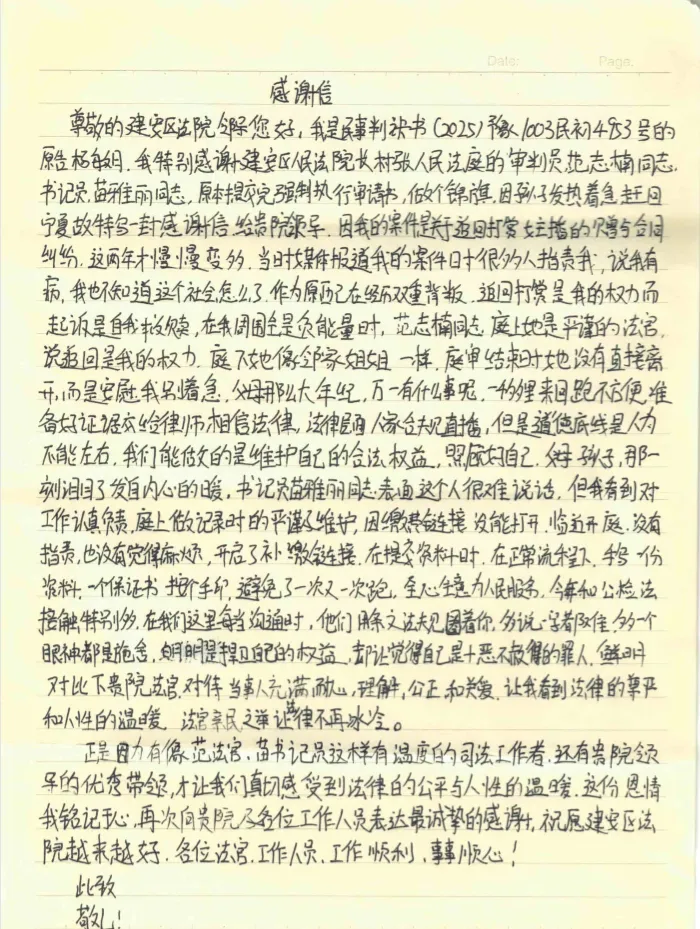 Date: Page.
感谢信
尊敬的建安区法院领导您好，我是民事判决书(2025)豫1003民初4983号的
原告杨 月。我特别感谢建安区人民法院长村张人民法庭的审判员范志楠同志，
书记员苗雅丽同志，原本提交完强制执行申请书，做个锦旗，因孙子发热着急赶回
宁夏故特写一封感谢信给贵院领导。因我的案件是关于追回打赏女主播的赠与合同
纠纷。这两年才慢慢变多。当时媒体报道我的案件时很多人指责我，说我有
病，我也不知道这个社会怎么了。作为原配已在经历双重背叛。追回打赏是我的权力而
起诉是自我救赎，在我周围全是负能量时，范志楠同志庭上她是严谨的法官，
说追回是我的权力。庭下她像邻家姐姐一样，庭审结束时她没有直接离
开，而是安慰我别着急，父母那么大年纪，万一有什么事呢，一 里来回跑不方便，准
备好证据交给律师相信法律，法律 人家合规直播，但是道德底线是人为
不能左右，我们能做的是维护自己的合法权益，照顾好自己、父母、孩子，那一
刻泪目了发自内心的暖，书记员苗雅丽同志表面这个人很难说话，但我看到对
工作认真负责，庭上做记录时的严谨及维护，因缴费链接没能打开，临近开庭，没有
指责，也没有觉得麻烦，开启了补缴链接。在提交资料时，在正常流程下，手写一份
资料，一个保证书，按个手印，避免了一次又一次跑，全心全意为人民服务，今年和公检法
接触特别多。在我们这里每当沟通时，他们用条文法规 着你，多说一字都困难，多一个
眼神都是施舍，明明是捍卫自己的权益，却让觉得自己是十恶不赦 的罪人，鲜明
对比下贵院法官，对待当事人充满耐心，理解，公正和关爱，让我看到法律的尊严
和人性的温暖，法官亲民之举让法律不再冰冷。
正是因为有像范法官，苗书记员这样有温度的司法工作者，还有贵院领
导的优秀带领，才让我们真切感受到法律的公平与人性的温暖，这份恩情
我铭记于心，再次向贵院及各位工作人员表达最诚挚的感谢，祝愿建安区法
院越来越好，各位法官，工作人员，工作顺利，事事顺心！
此致
敬礼！